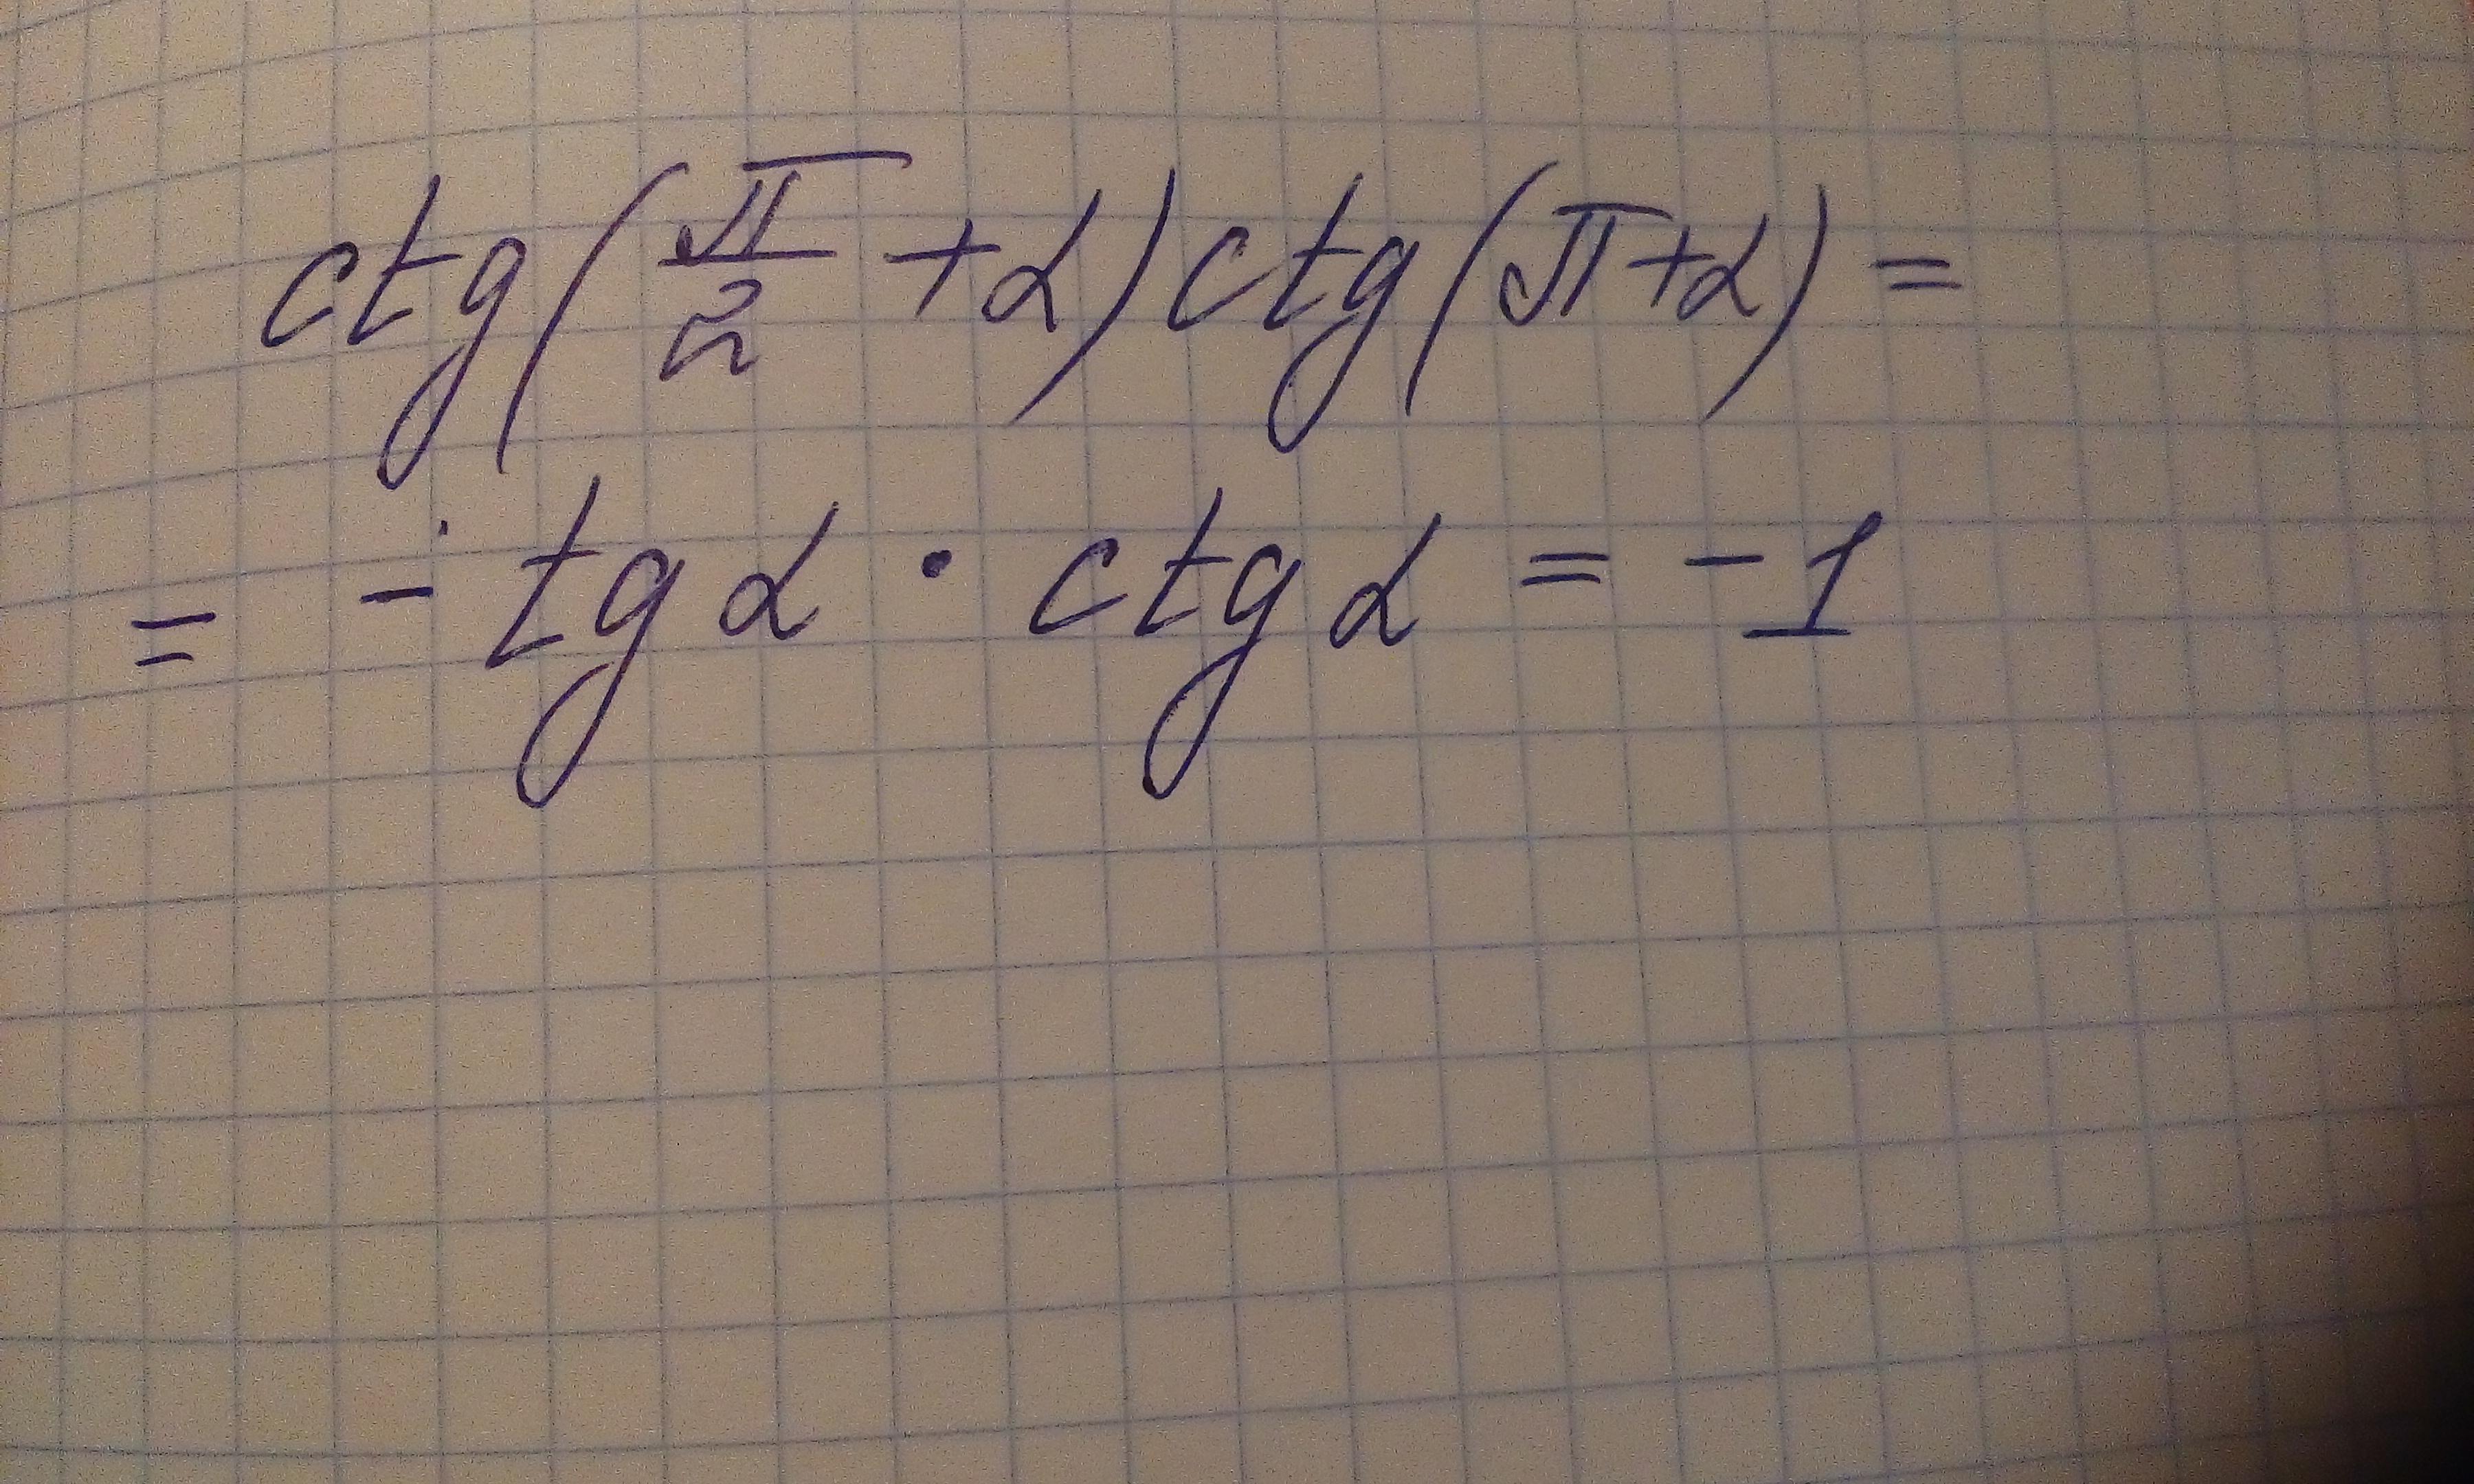 ctg(π/2 + α) ctg(π+α) =
= - tg α · ctg α = -1